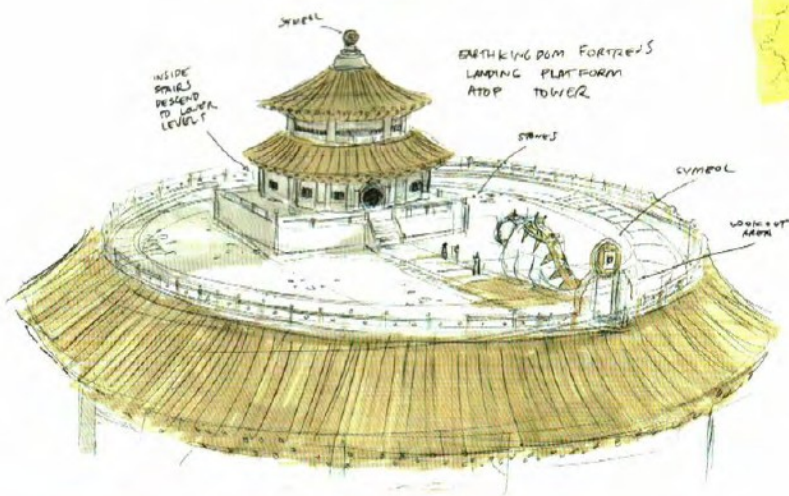 SYMBOL
EARTH KINGDOM FORTRESS
LANDING PLATFORM
ATOP TOWER
INSIDE
STAIRS
DESCEND
TO LOWER
LEVELS
STONES
SYMBOL
LOOKOUT
AREA